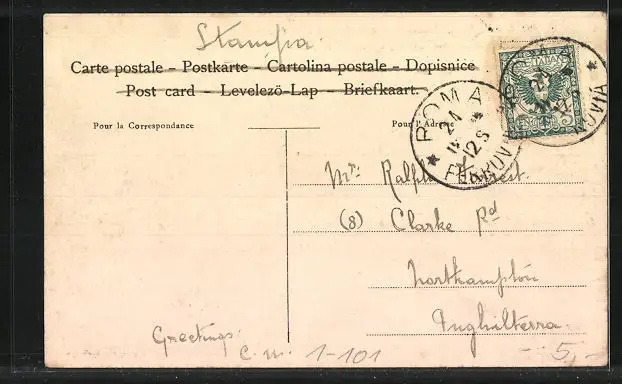 Stampa
Carte postale – Postkarte – Cartolina postale – Dopisnice
Post card – Levelezö-Lap – Briefkaart.
Pour la Correspondance
Pour l'Adresse
ROMA
24
12 S
FERROVIA
ROVIA
Mr. Ralph
(8) Clarke Rd
Northampton
Inghilterra
Greetings.
C.M. 1-101
5,-